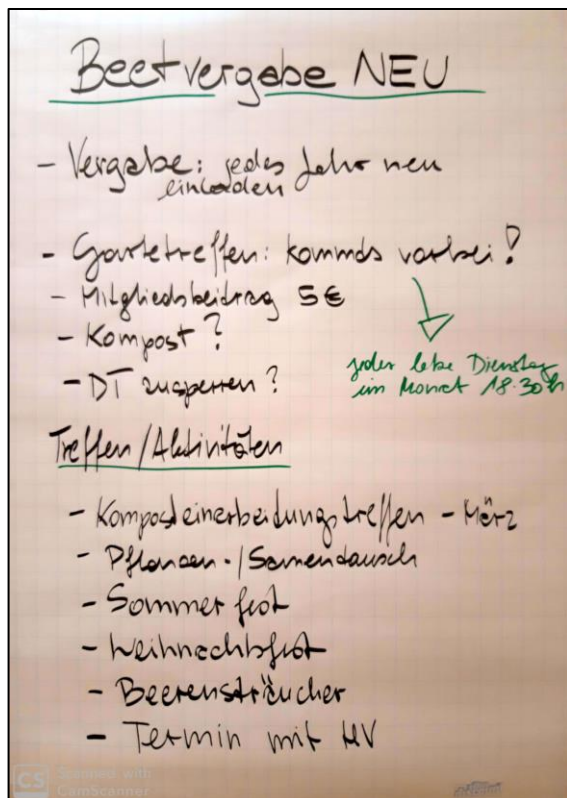 Beetvergabe NEU
- Vergabe: jedes Jahr neu
einladen
- Gartetreffen: kommds vorbei!
- Mitgliedsbeitrag 5€
- Kompost?
- DT zusperren?
jeder letze Dienstag
im Monat 18.30h
Treffen/Aktivitäten
- Komposteinarbeitungstreffen - März
- Pflanzen-/Samentausch
- Sommerfest
- Weihnachtsfest
- Beerensträucher
- Termin mit HV
CS Scanned with
CamScanner